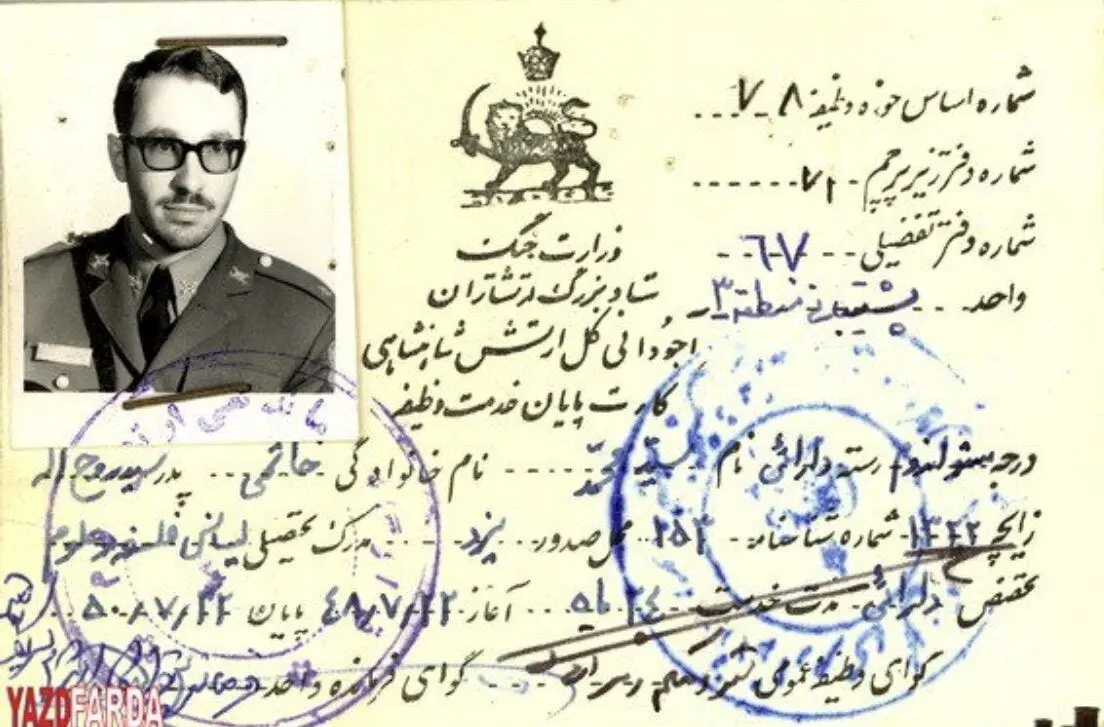 شماره اساس حوزه وظیفه ۷۰۸
شماره دفتر زیر پرچم ۷۱
شماره دفتر تفضیلی ۶۷
واحد پشتیبانی منطقه ۳
وزارت جنگ
ستاد بزرگ ارتشتاران
اجودانی کل ارتش شاهنشاهی
کارت پایان خدمت وظیفه
درجه ستواندوم رسته دارائی نام سید محمد نام خانوادگی خاتمی پدر سید روح اله
زایچه ۱۳۲۲ شماره شناسنامه ۲۵۳ محل صدور یزد مدرک تحصیلی لیسانس فلسفه و علوم
تخصص دارائی مدت خدمت ۲۴ ماه آغاز ۴۸/۷/۲۲ پایان ۵۰/۷/۲۲
گواهی وظیفه عمومی گواهی فرمانده واحد
YAZDFARDA